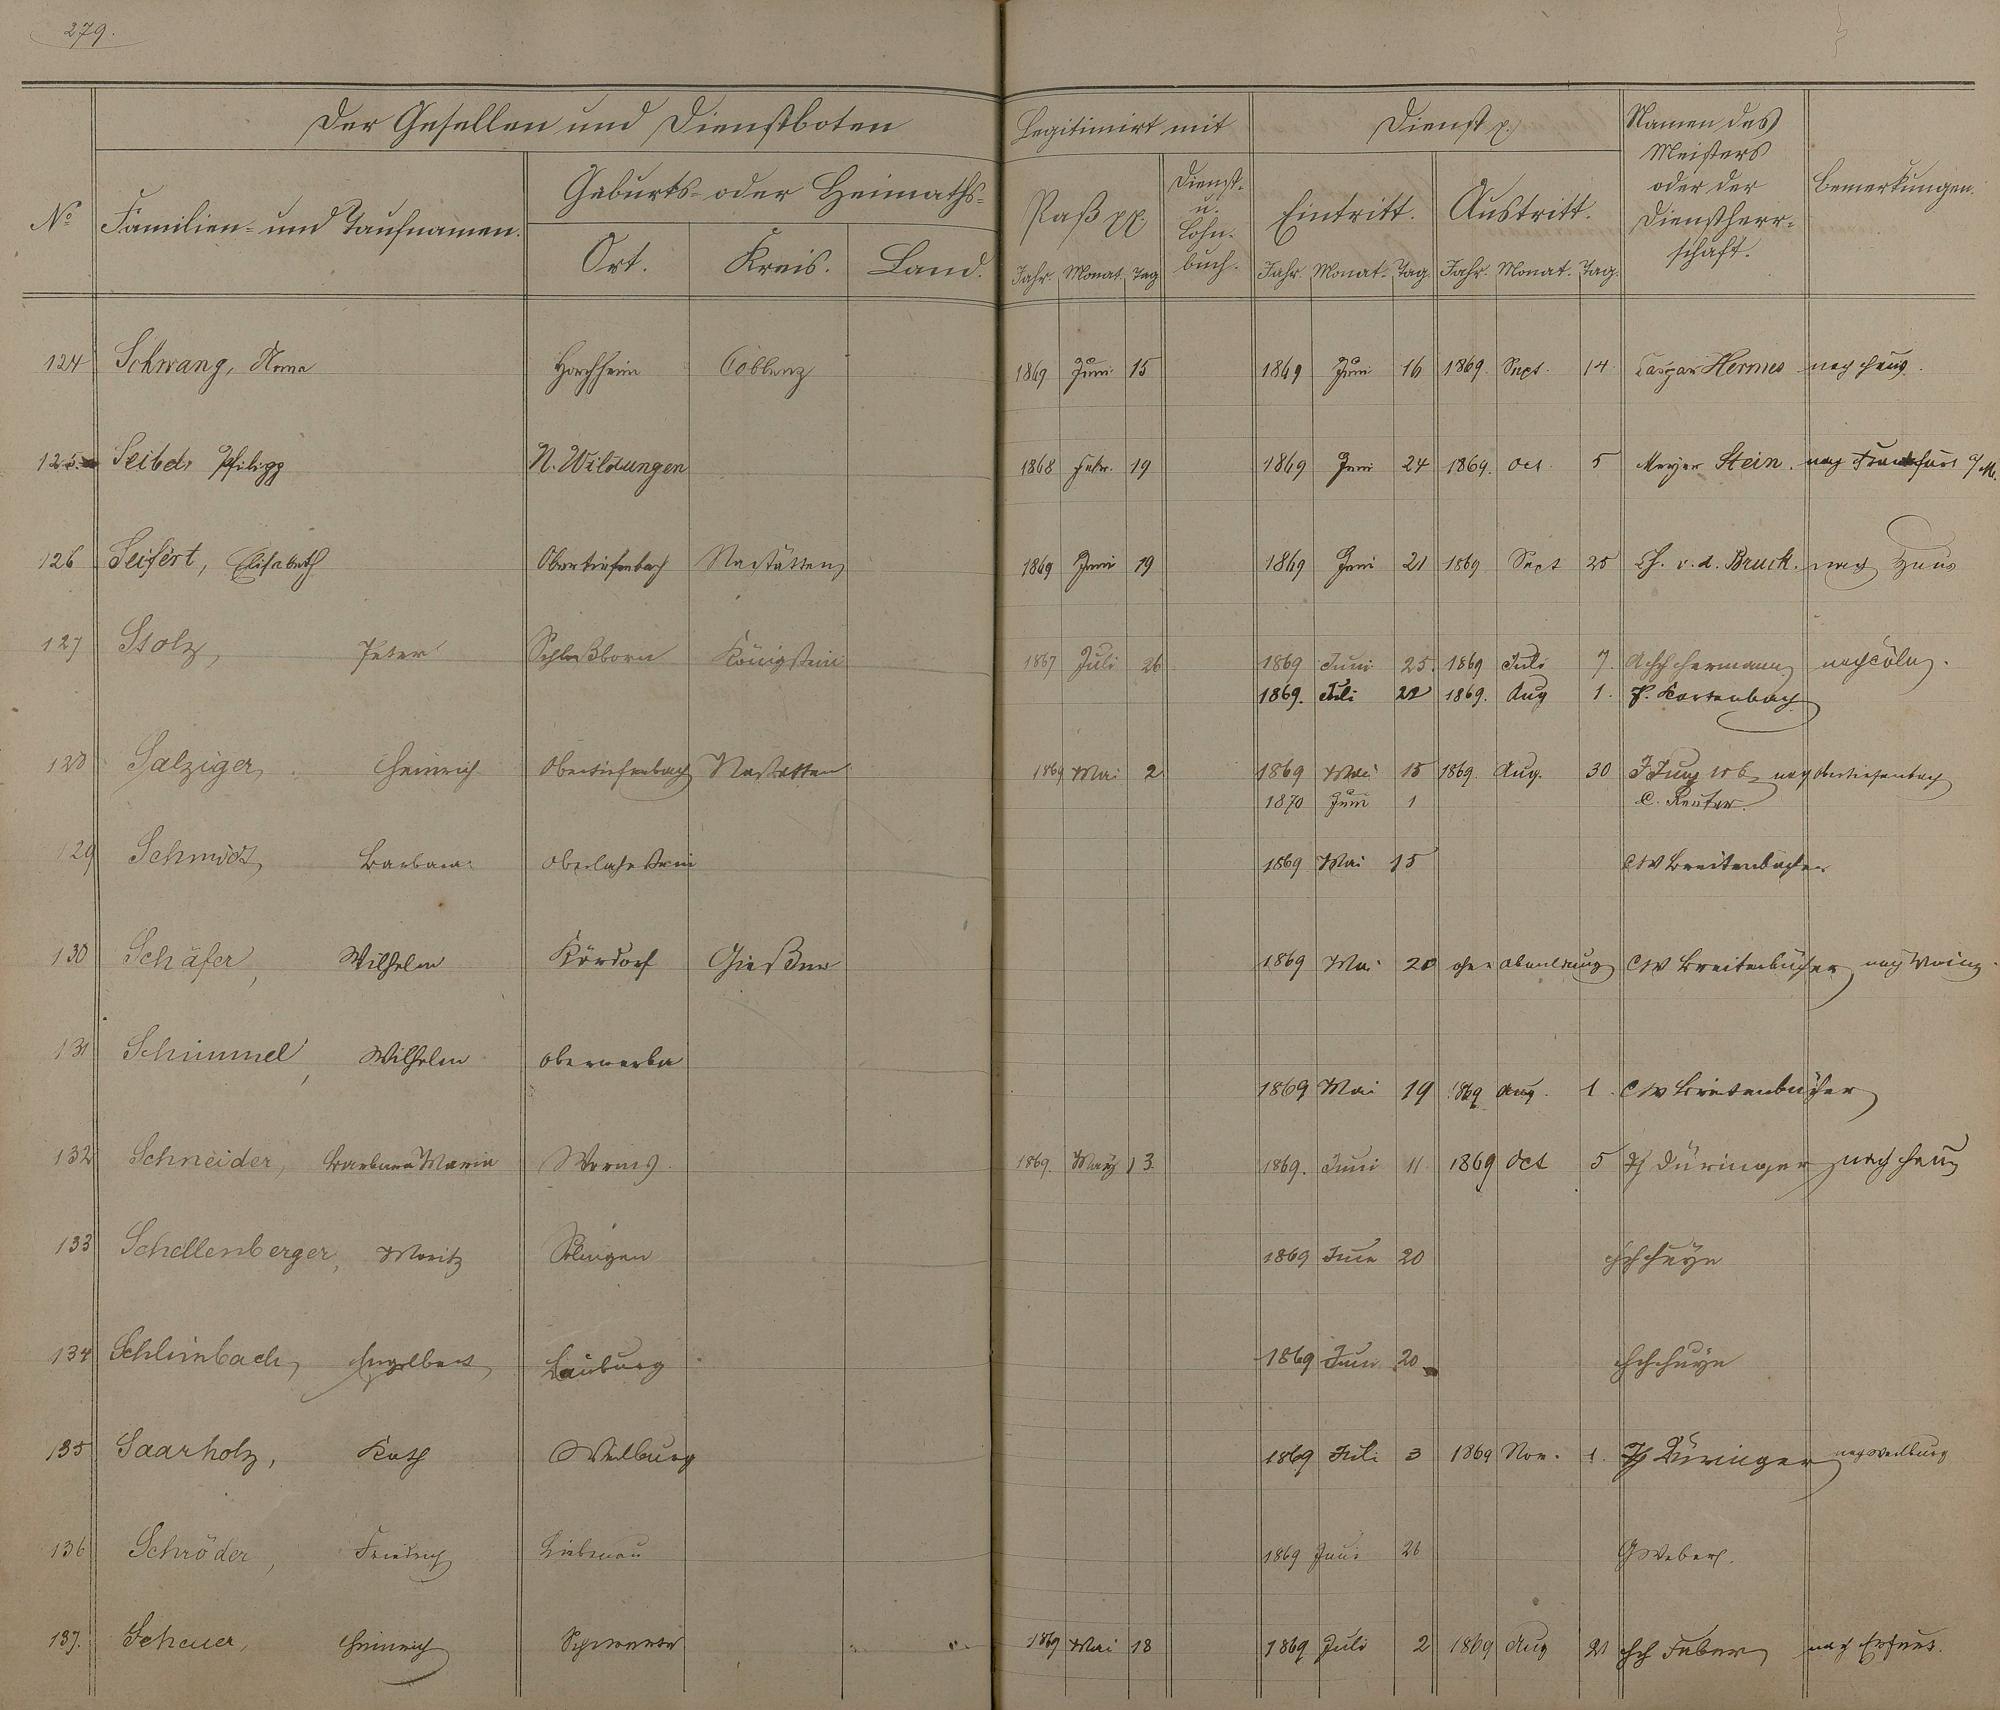 279.
Der Gesellen und Dienstboten
Legitimirt mit
Dienst p.
Namen des Meisters oder der Dienstherr-schaft.
Bemerkungen.
No
Familien- und Taufnamen.
Geburts- oder Heimaths-
Ort. Kreis. Land.
Paß pp.
Dienst- u. Lohn-buch.
Eintritt. Austritt.
Jahr. Monat. Tag Jahr. Monat. Tag. Jahr. Monat. Tag.
124 Schwang, Anna Horchheim Coblenz 1869 Juni 15 1869 Juni 16 1869. Sept. 14 Caspar Hermes nach Haus.
125 Philipp N. Wildungen 1868 Febr. 19 1869 Juni 24 1869. Oct. 5 Meyer Stein. nach Frankfurt a/M.
126 Seifert, Elisabeth Obertiefenbach Nastätten 1869 Juni 19 1869 Juni 21 1869 Sept 25 v. d. Bruck. nach Haus
127 Stolz, Peter Schloßborn Königstein 1867 Juli 26 1869 Juni 25. 1869 Juli 7. Hermann nach Cöln.
1869. Juli 22 1869. Aug 1. Kortenbach
128 Salziger, Heinrich Obertiefenbach Nastätten 1869 Mai 2 1869 Mai 15 1869. Aug. 30 nach Obertiefenbach
1870 Juni 1 C. Reuter.
129 Schmidt, Barbara Oberlahnstein 1869 Mai 15 C W Breitenbücher
130 Schäfer, Wilhelm Kördorf Gießen 1869 Mai 20 ohne Abmeldung C W Breitenbücher nach Mainz.
131 Schimmel, Wilhelm 1869 Mai 19 1869 Aug. 1. C W Breitenbücher
132 Schneider, Barbara Maria Worms. 1869. März 13 1869. Juni 11. 1869 Oct 5 Düringer nach Haus
133 Schellenberger, Moritz Solingen 1869 Juni 20
134 Schlimbach, Engelbert 1869 Juni 20
135 Saarholz, Kath Weilburg 1869 Juli 3 1869 Nov. 1. Düringer nach Weilburg
136 Schröder, Friedrich Liebenau 1869 Juni 26 G Weber.
137. Scheuer, Heinrich 1869 Mai 18 1869 Juli 2 1869 Aug 21 Faber nach Erfurt.